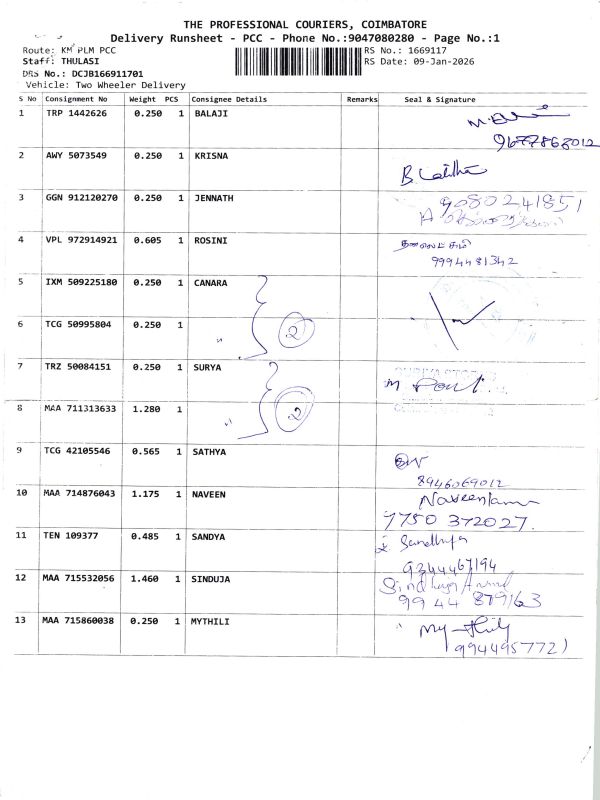 THE PROFESSIONAL COURIERS, COIMBATORE
Delivery Runsheet - PCC - Phone No.:9047080280 - Page No.:1
Route: KM PLM PCC
RS No.: 1669117
Staff: THULASI
RS Date: 09-Jan-2026
DRS No.: DCJB166911701
Vehicle: Two Wheeler Delivery
S No Consignment No Weight PCS Consignee Details Remarks Seal & Signature
1 TRP 1442626 0.250 1 BALAJI
9677868012
2 AWY 5073549 0.250 1 KRISNA
B Lalitha
3 GGN 912120270 0.250 1 JENNATH
9080241851
4 VPL 972914921 0.605 1 ROSINI
9994481342
5 IXM 509225180 0.250 1 CANARA
6 TCG 50995804 0.250 1
2
7 TRZ 50084151 0.250 1 SURYA
8 MAA 711313633 1.280 1
2
9 TCG 42105546 0.565 1 SATHYA
8946069012
10 MAA 714876043 1.175 1 NAVEEN
7750 372027.
11 TEN 109377 0.485 1 SANDYA
Sandhya
9344467194
12 MAA 715532056 1.460 1 SINDUJA
9944 879163
13 MAA 715860038 0.250 1 MYTHILI
Mythily
9944957721